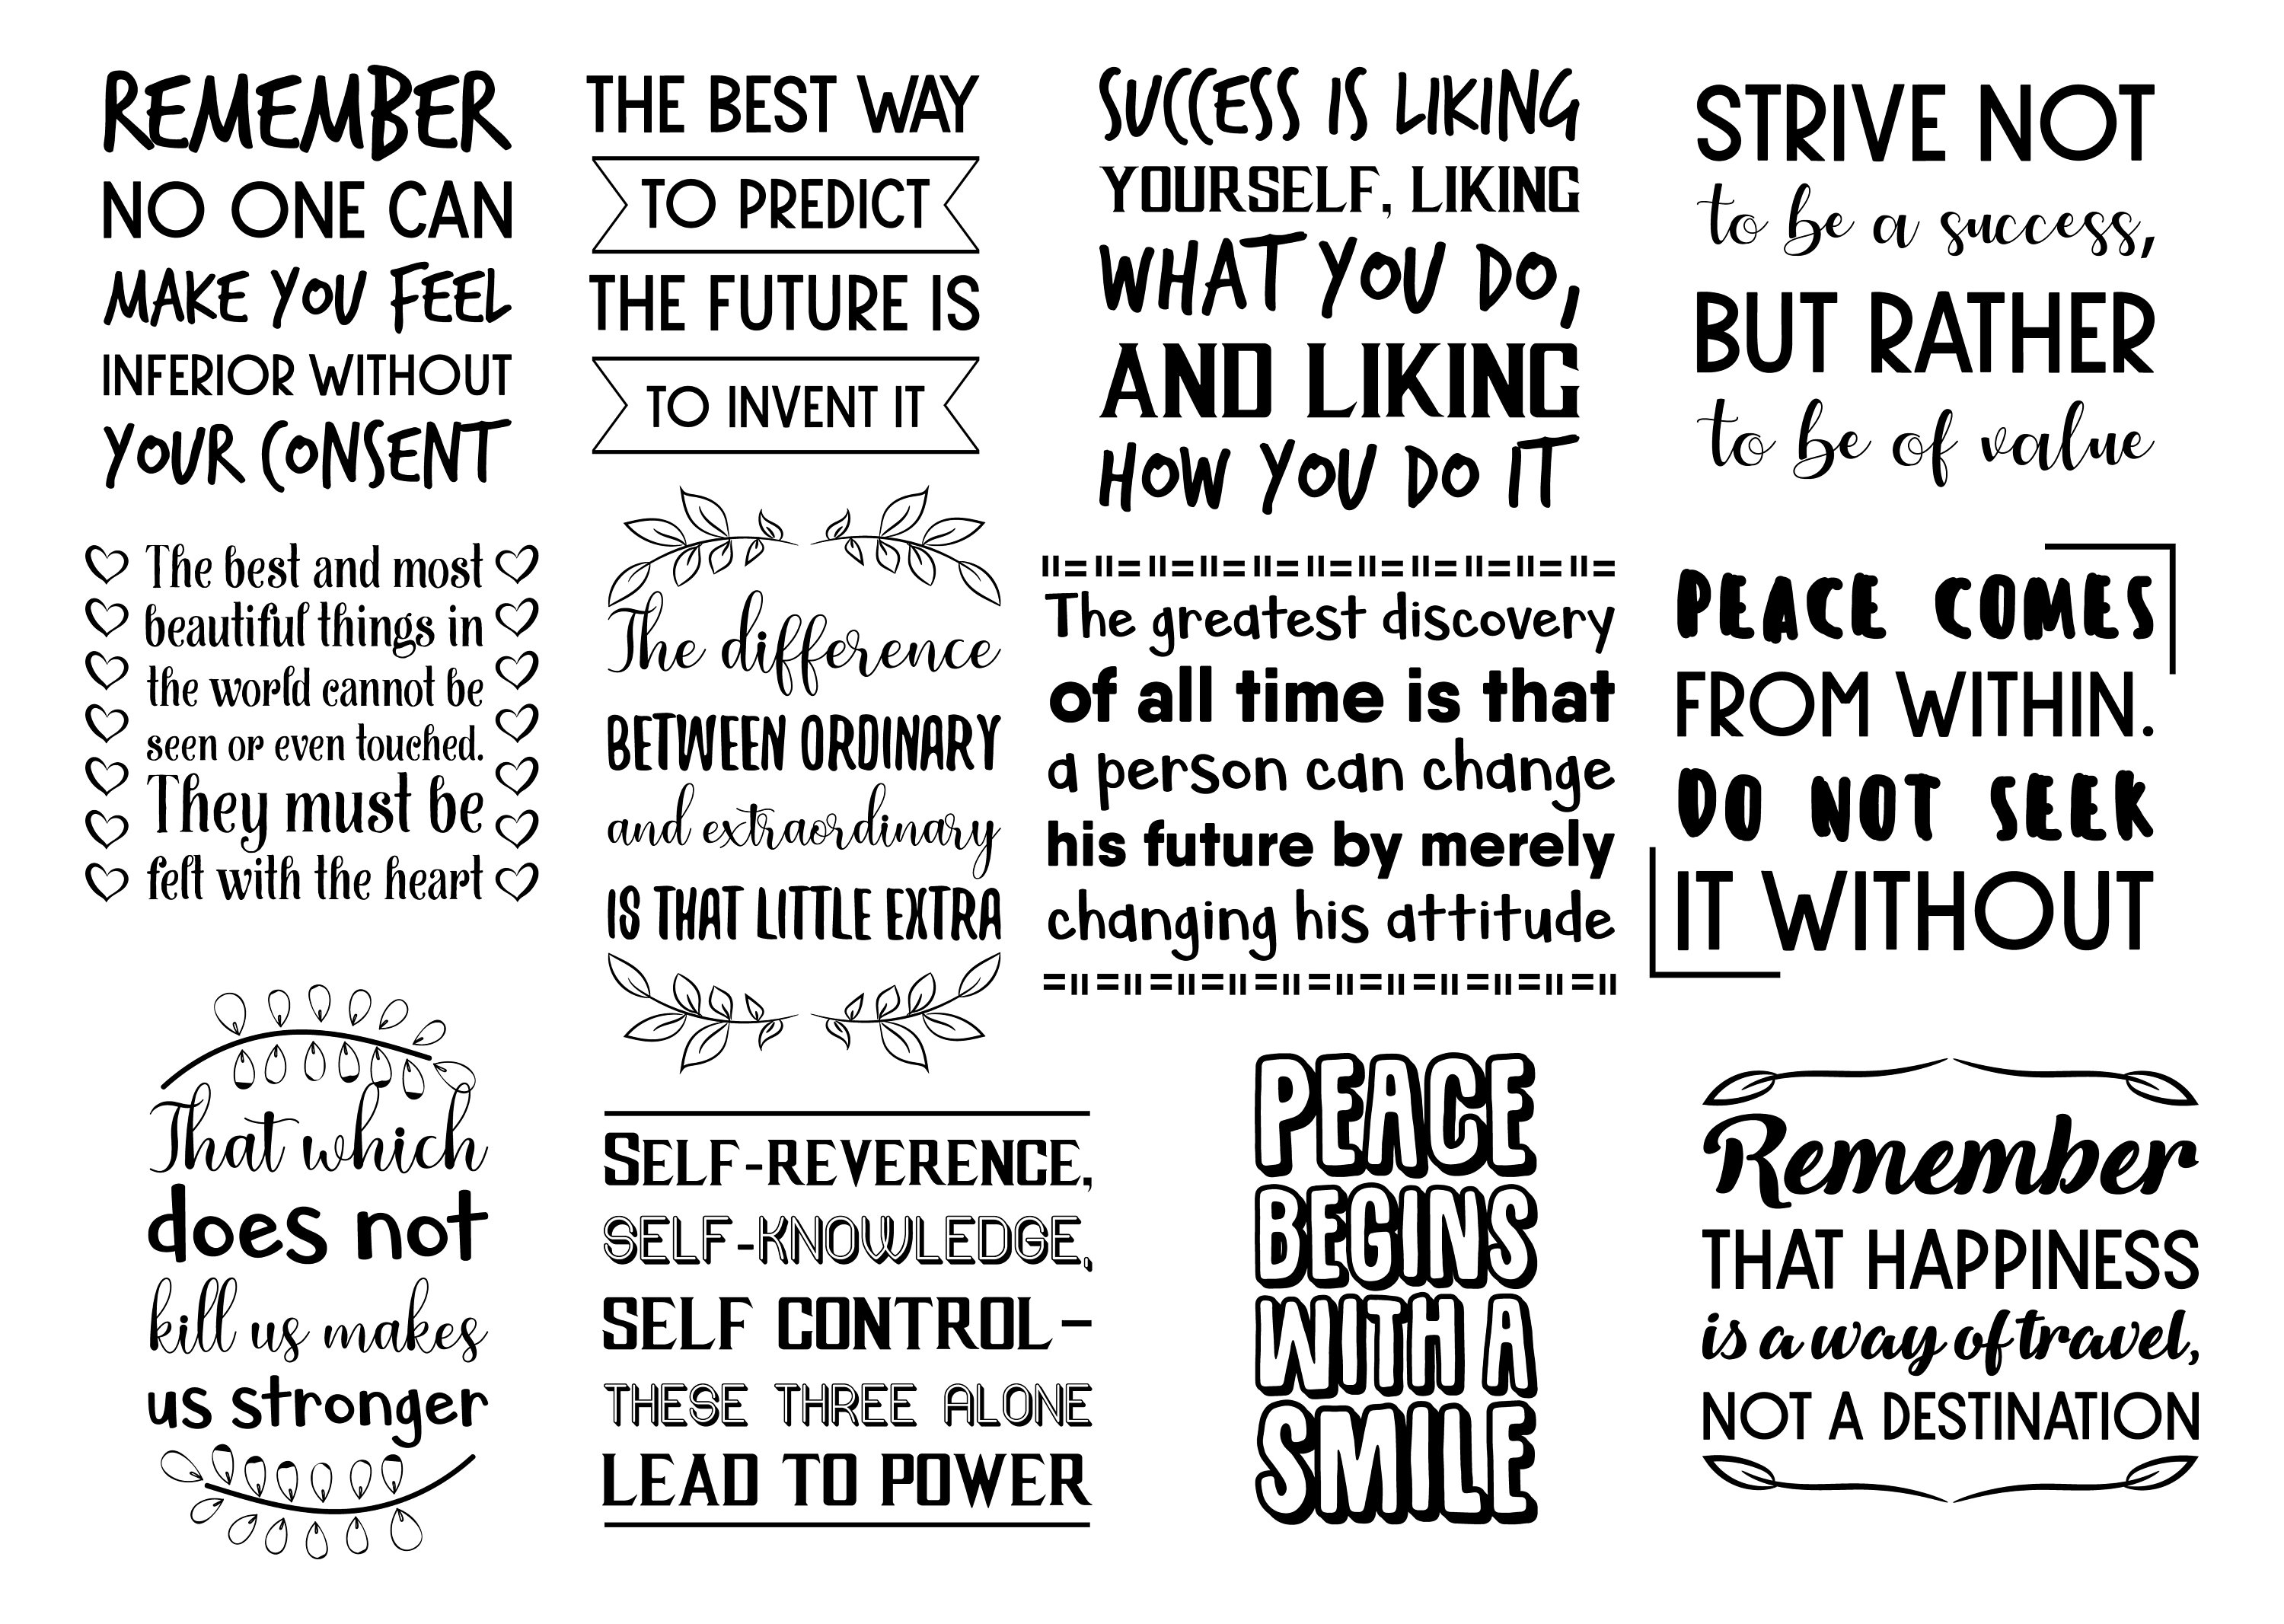 REMEMBER
NO ONE CAN
MAKE YOU FEEL
INFERIOR WITHOUT
YOUR CONSENT
THE BEST WAY
TO PREDICT
THE FUTURE IS
TO INVENT IT
SUCCESS IS LIKING
YOURSELF, LIKING
WHAT YOU DO,
AND LIKING
HOW YOU DO IT
STRIVE NOT
to be a success,
BUT RATHER
to be of value
The best and most
beautiful things in
the world cannot be
seen or even touched.
They must be
felt with the heart
The difference
BETWEEN ORDINARY
and extraordinary
IS THAT LITTLE EXTRA
The greatest discovery
of all time is that
a person can change
his future by merely
changing his attitude
PEACE COMES
FROM WITHIN.
DO NOT SEEK
IT WITHOUT
That which
does not
kill us makes
us stronger
SELF-REVERENCE,
SELF-KNOWLEDGE,
SELF CONTROL-
THESE THREE ALONE
LEAD TO POWER
PEACE
BEGINS
WITH A
SMILE
Remember
THAT HAPPINESS
is a way of travel,
NOT A DESTINATION